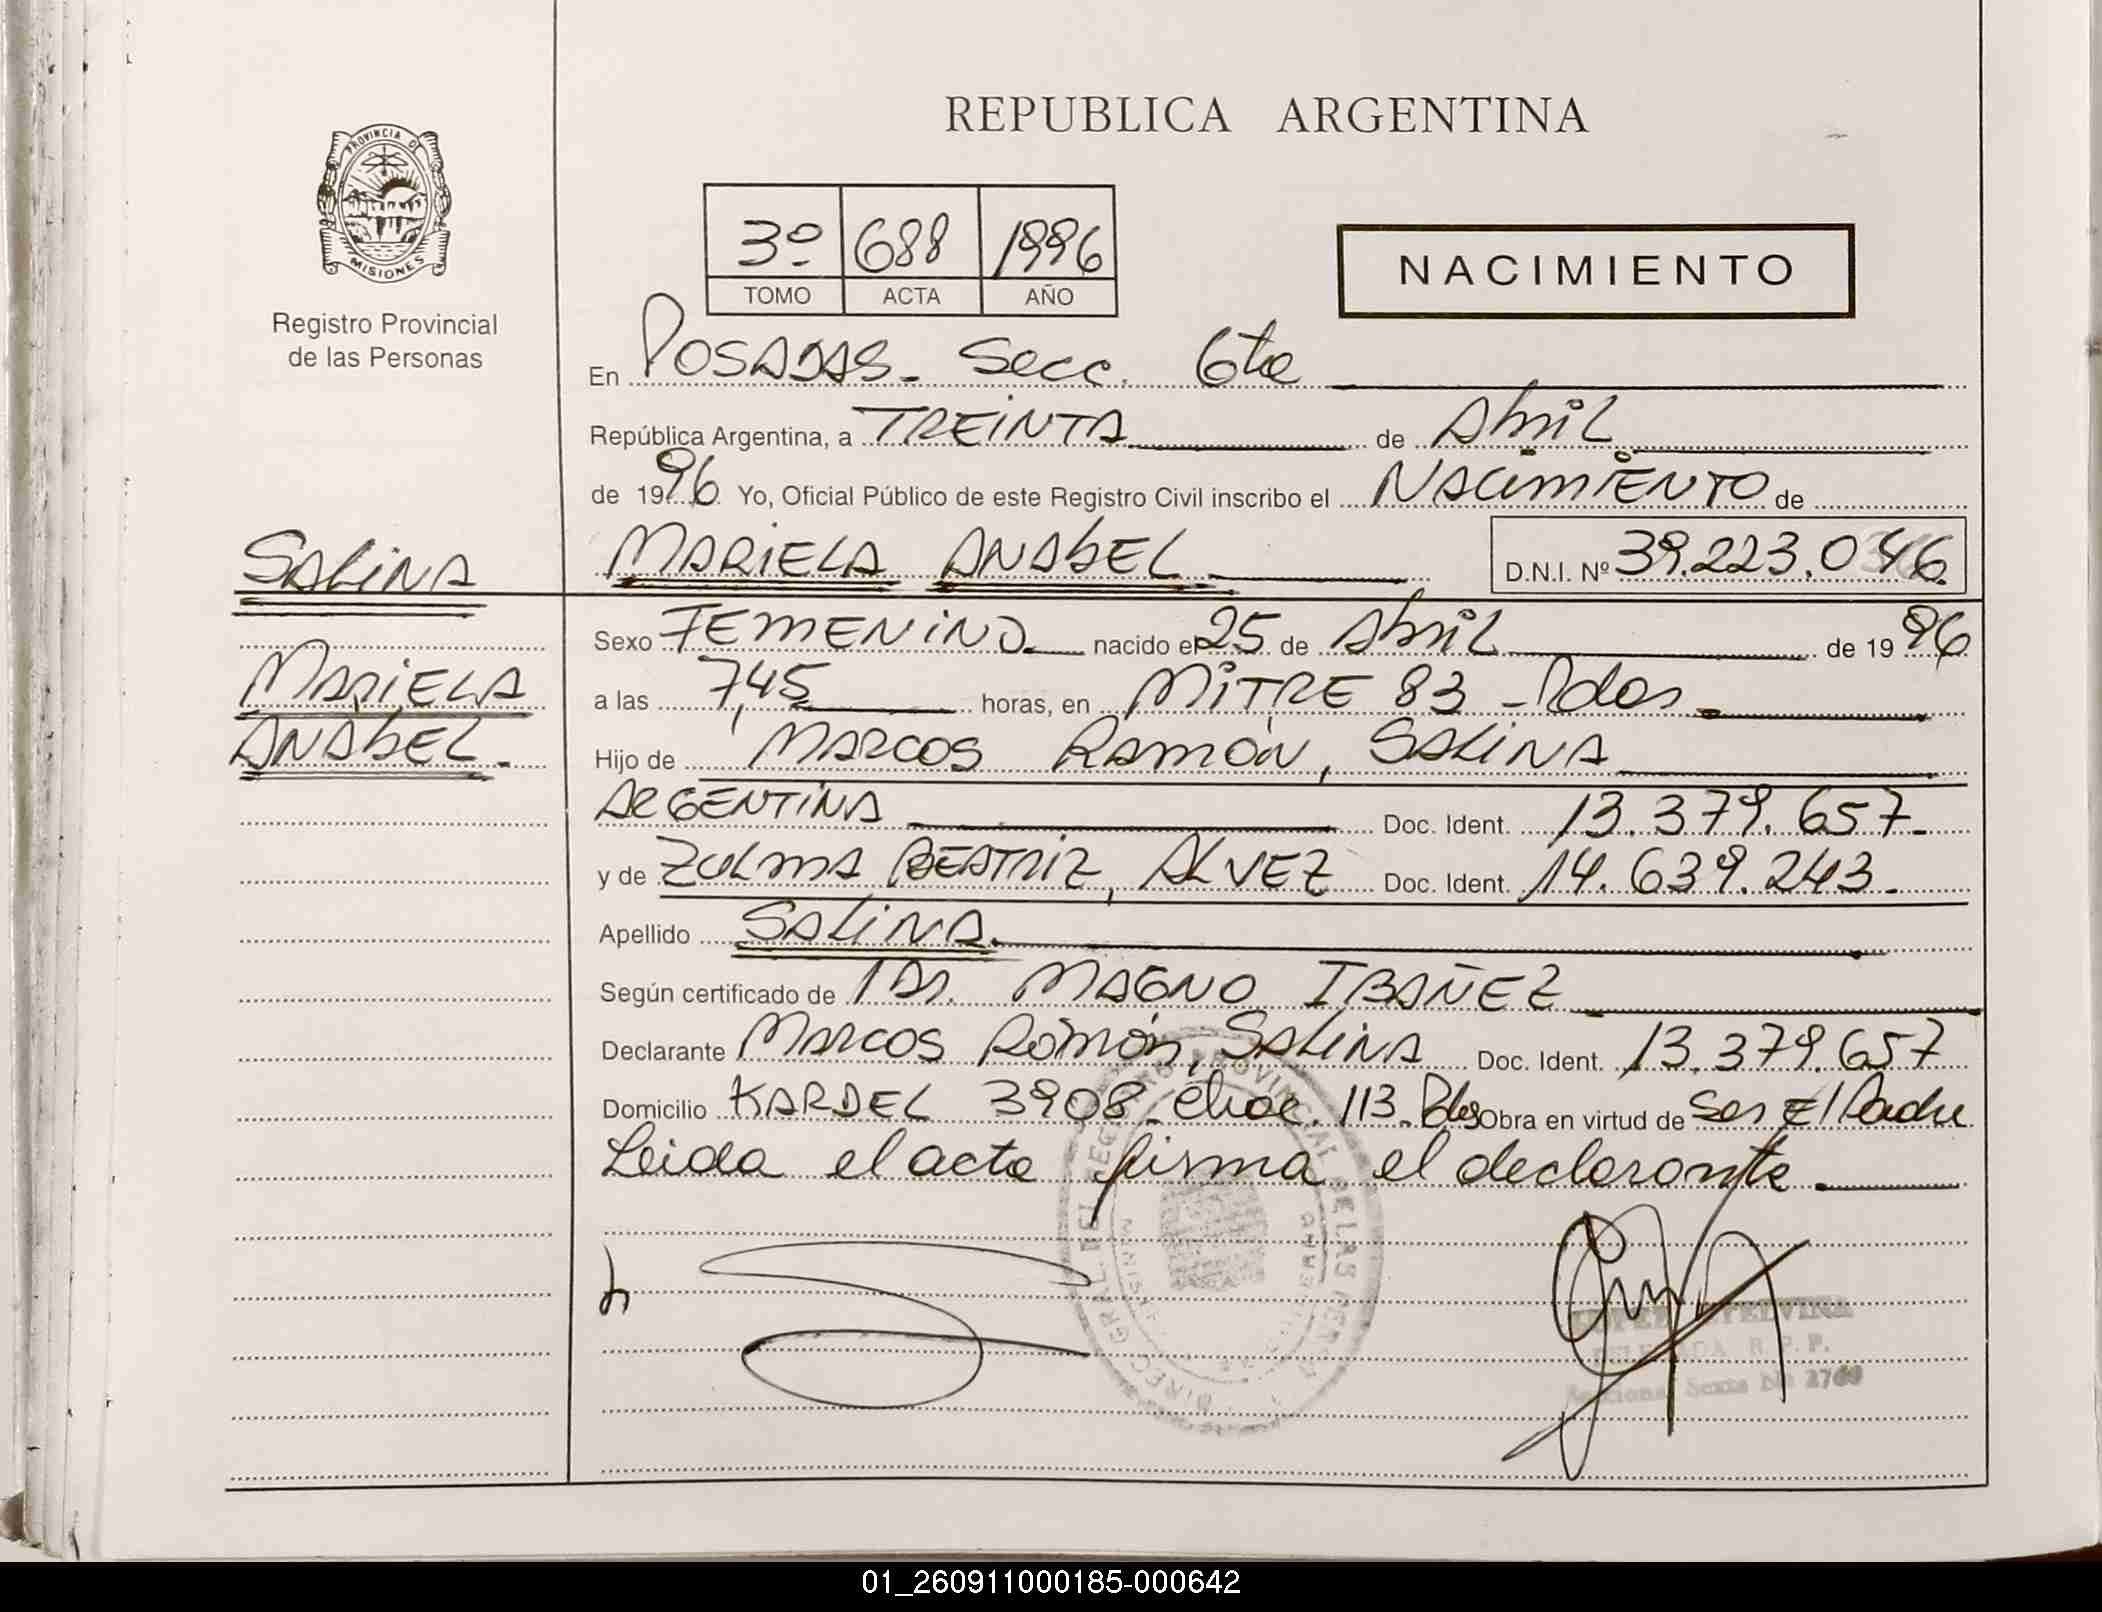 REPUBLICA ARGENTINA
PROVINCIA DE
MISIONES
Registro Provincial
de las Personas
3º 688 1996
TOMO ACTA AÑO
NACIMIENTO
En POSADAS - Secc. 6ta
República Argentina, a TREINTA de Abril
de 1996 Yo, Oficial Público de este Registro Civil inscribo el NACIMIENTO de
SALINA MARIELA ANABEL D.N.I. Nº 39.223.046
Sexo FEMENINO nacido el 25 de Abril de 1996
MARIELA
a las 7,45 horas, en MITRE 83 - Pdas
ANABEL.
Hijo de MARCOS RAMÓN, SALINA
ARGENTINA Doc. Ident. 13.379.657
y de ZULMA BEATRIZ, ALVEZ Doc. Ident. 14.639.243.
Apellido SALINA.
Según certificado de Dr. MAGNO IBAÑEZ
Declarante MARCOS RAMÓN, SALINA Doc. Ident. 13.379.657
Domicilio KARDEL 3908 - Chac. 113. Pdas Obra en virtud de Ser El Padre
Leida el acta firma el declarante.
DELEGADA R.P.P.
01_260911000185-000642